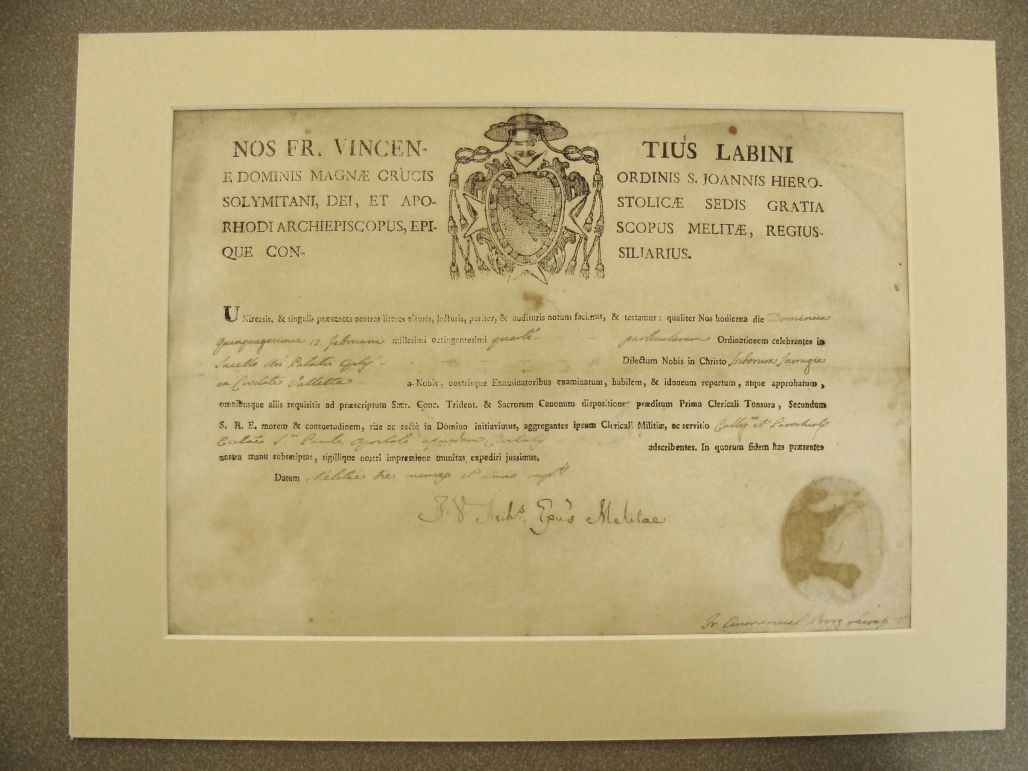 NOS FR. VINCEN- TIUS LABINI
E DOMINIS MAGNÆ CRUCIS ORDINIS S. JOANNIS HIERO-
SOLYMITANI, DEI, ET APO- STOLICÆ SEDIS GRATIA
RHODI ARCHIEPISCOPUS, EPI- SCOPUS MELITÆ, REGIUS-
QUE CON- SILIARIUS.
Universis, & singulis præsentes nostras literas visuris, lecturis, pariter, & audituris notum facimus, & testamur: qualiter Nos hodierna die Dominica
Quinquagesimæ 12 februarii millesimi octingentesimi particularem Ordinationem celebrantes in
Sacello Palatii Dilectum Nobis in Christo
Valletta a Nobis, nostrisque Examinatoribus examinatum, habilem, & idoneum repertum, atque approbatum,
omnibusque aliis requisitis ad præscriptum Sacr. Conc. Trident. & Sacrorum Canonum dispositione præditum Prima Clericali Tonsura, Secundum
S. R. E. morem & consuetudinem, rite ac rectè in Domino initiavimus, aggregantes ipsum Clericali Militiæ, ac servitio
Pauli adscribentes. In quorum fidem has præsentes
nostra manu subscriptas, sigillique nostri impressione munitas expediri jussimus.
Datum Melitae die mense et anno
F. V. Arch. Epus Melitae